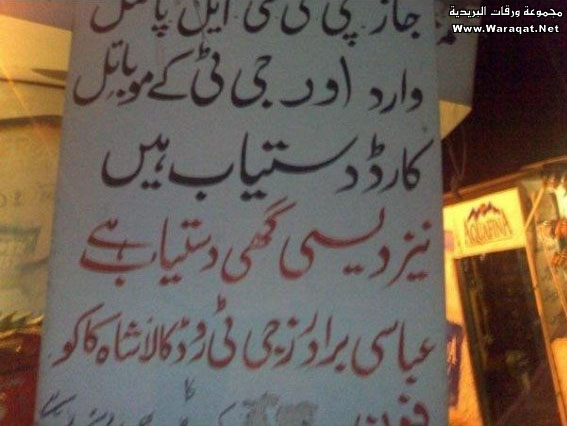 مجموعة ورقات البريدية
www.Waraqat.Net
جاز پی ٹی سی ایل پاسل
وارد اور جی ٹی کے موبائل
کارڈ دستیاب ہیں
نیز دیسی گھی دستیاب ہے
عباسی برادرز جی ٹی روڈ کالا شاہ کاکو
فون
AQUAFINA